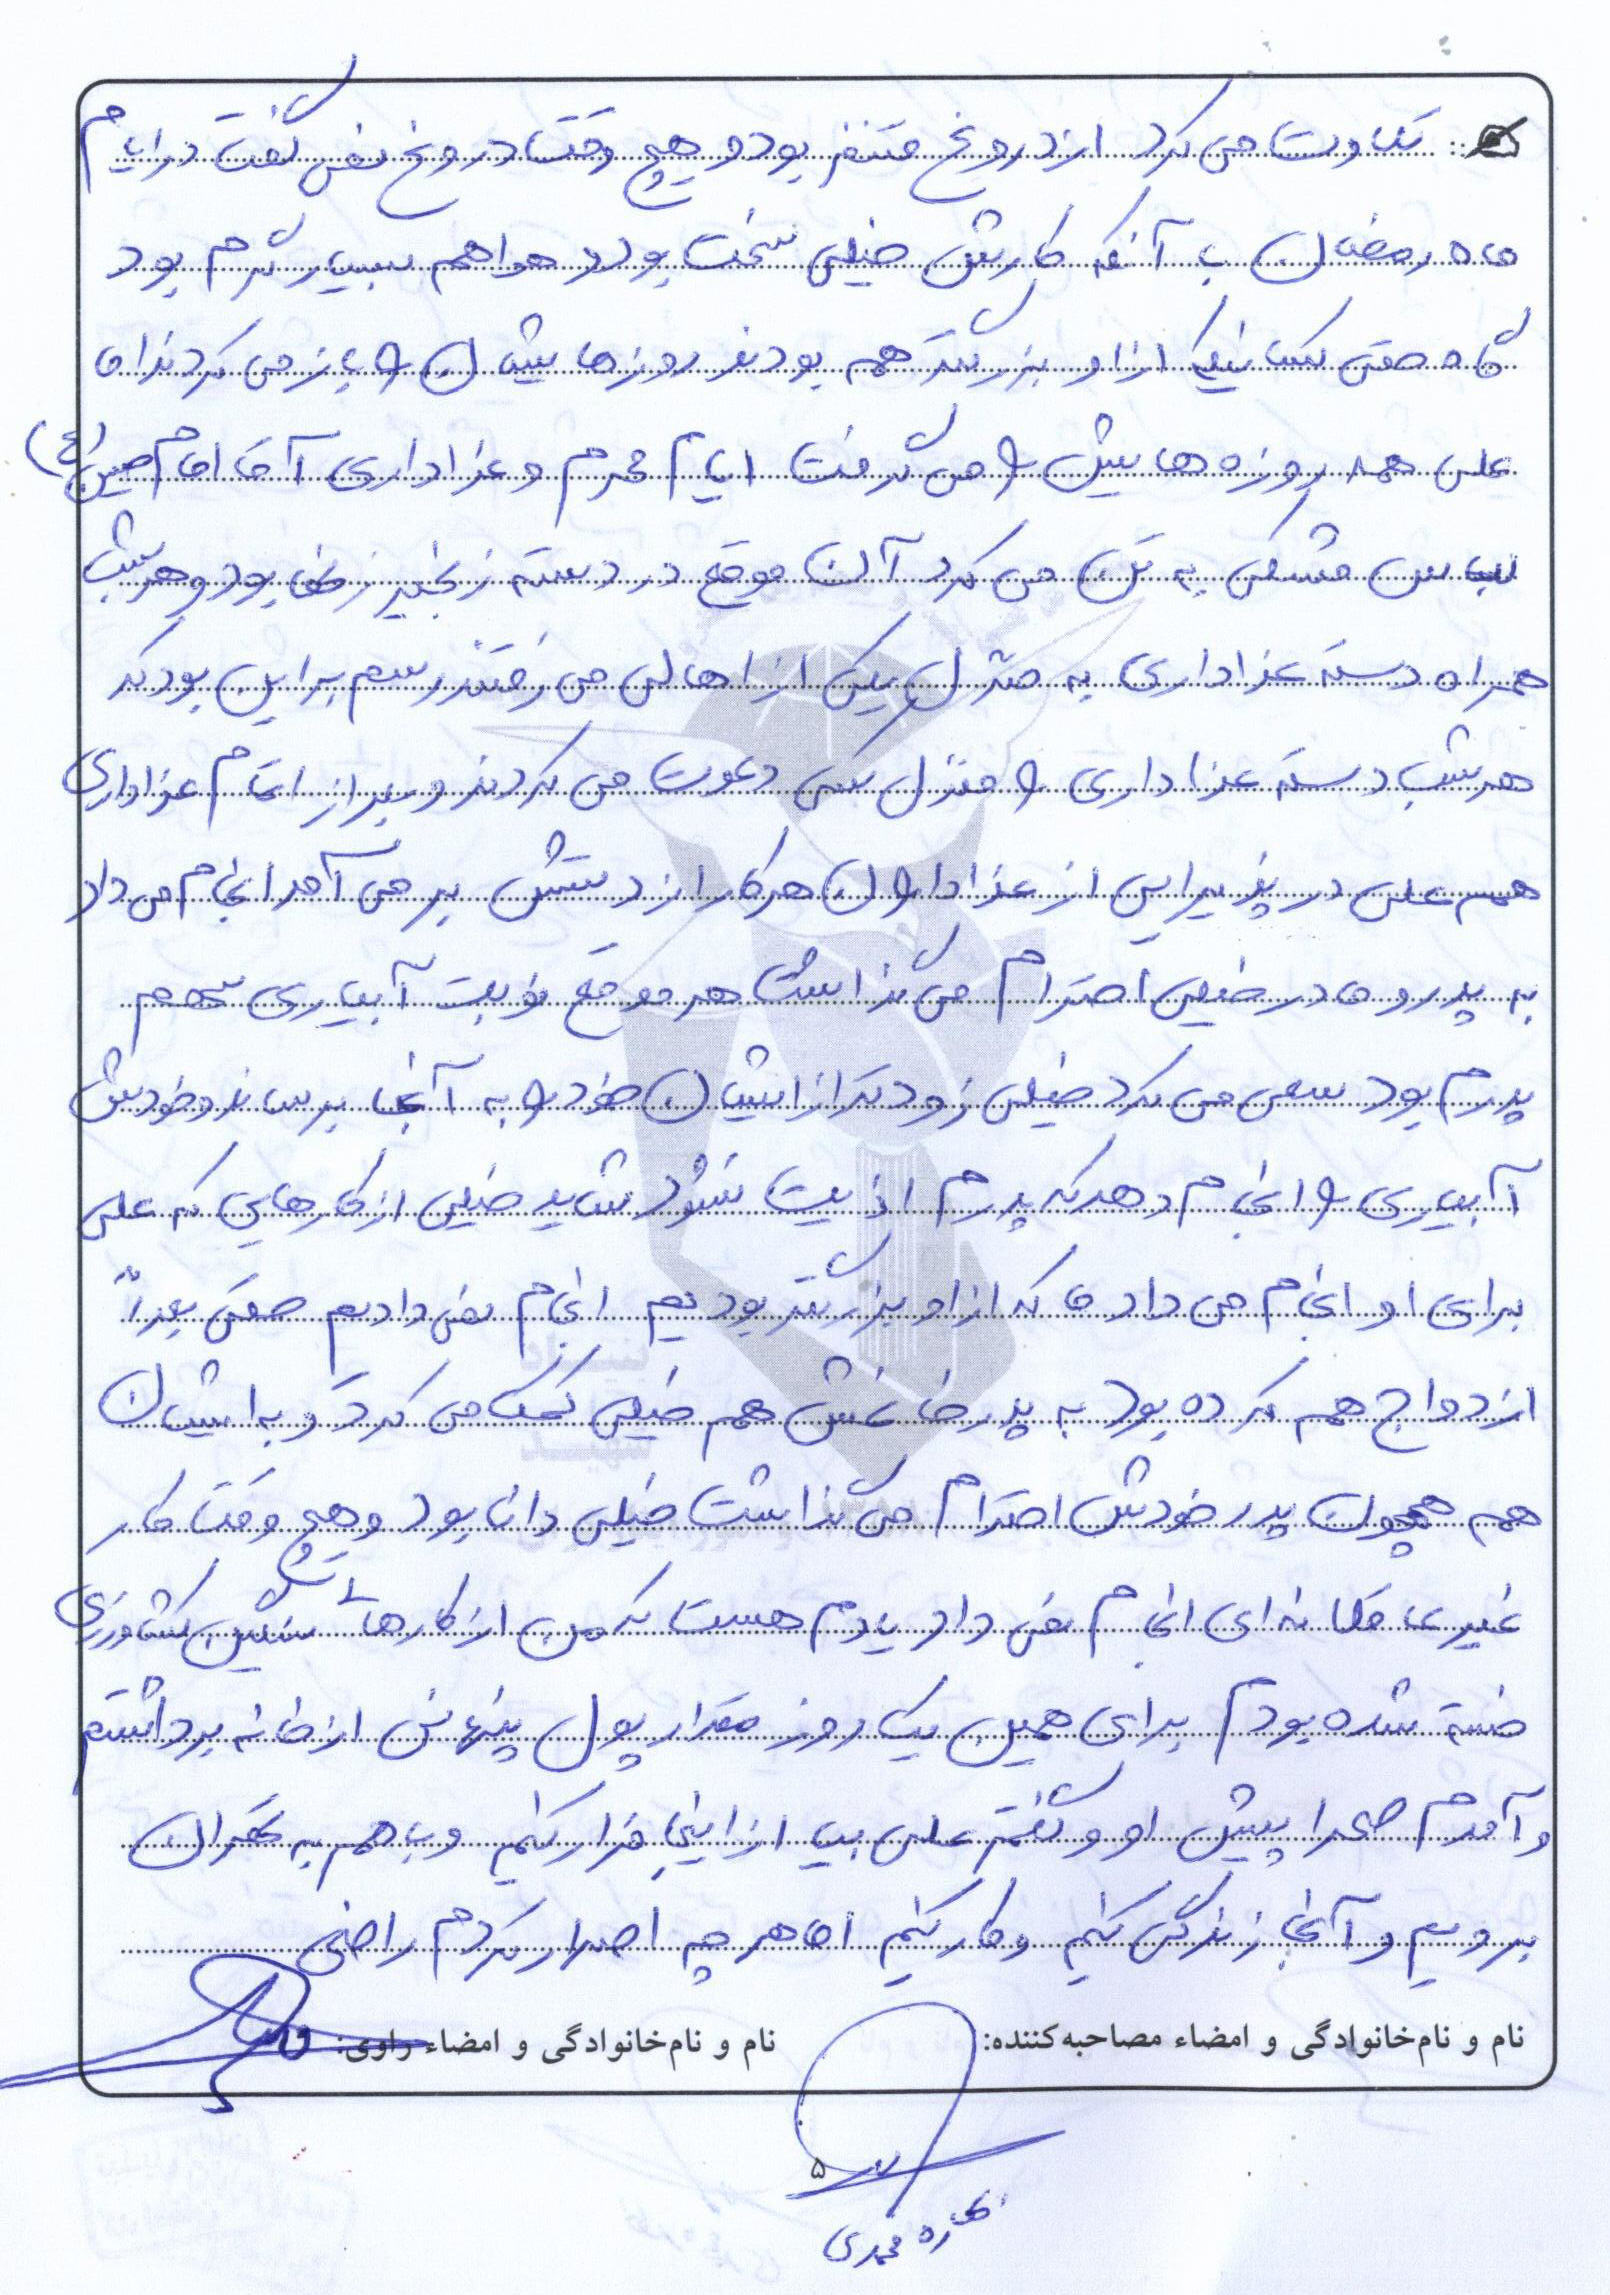 تلاوت می کرد از دروغ متنفر بود و هیچ وقت دروغ نمی گفت در ایام
ماه رمضان با آنکه کارش خیلی سخت بود و هوا هم بسیار گرم بود
گاه حتی کسانیکه از او بزرگتر هم بودند روزهایشان را باز می کردند اما
علی همه روزه هایش را می گرفت ایام محرم و عزاداری آقا امام حسین (ع)
لباس مشکی به تن می کرد آن موقع در دسته زنجیر زنها بود و هر شب
همراه دسته عزاداری به منزل یکی از اهالی می رفتند رسم بر این بود که
هر شب دسته عزاداری را منزل کسی دعوت می کردند و بعد از اتمام عزاداری
هم علی در پذیرایی از عزاداران هر کار از دستش بر می آمد انجام می داد
به پدر و مادر خیلی احترام می گذاشت هر موقع نوبت آبیاری سهم
پدرم بود سعی می کرد خیلی زودتر از ایشان خود را به آنجا برساند و خودش
آبیاری را انجام دهد که پدرم اذیت نشود شاید خیلی از کارهایی که علی
برای او انجام می داد ما که از او بزرگتر بودیم انجام نمی دادیم حتی بعداً
ازدواج هم کرده بود به پدر خانمش هم خیلی کمک می کرد و به ایشان
هم همچون پدر خودش احترام می گذاشت خیلی دانا بود و هیچ وقت کار
غیر عاقلانه ای انجام نمی داد یادم هست که من از کارها سنگین کشاورزی
خسته شده بودم برای همین یک روز مقدار پول پنهانی از خانه برداشتم
و آمدم صحرا پیش او و گفتم علی بیا از اینجا فرار کنیم و با هم به تهران
برویم و آنجا زندگی کنیم و کار کنیم اما هر چه اصرار کردم راضی
نام و نام‌خانوادگی و امضاء مصاحبه‌کننده:
نام و نام‌خانوادگی و امضاء راوی:
۵
محمدی